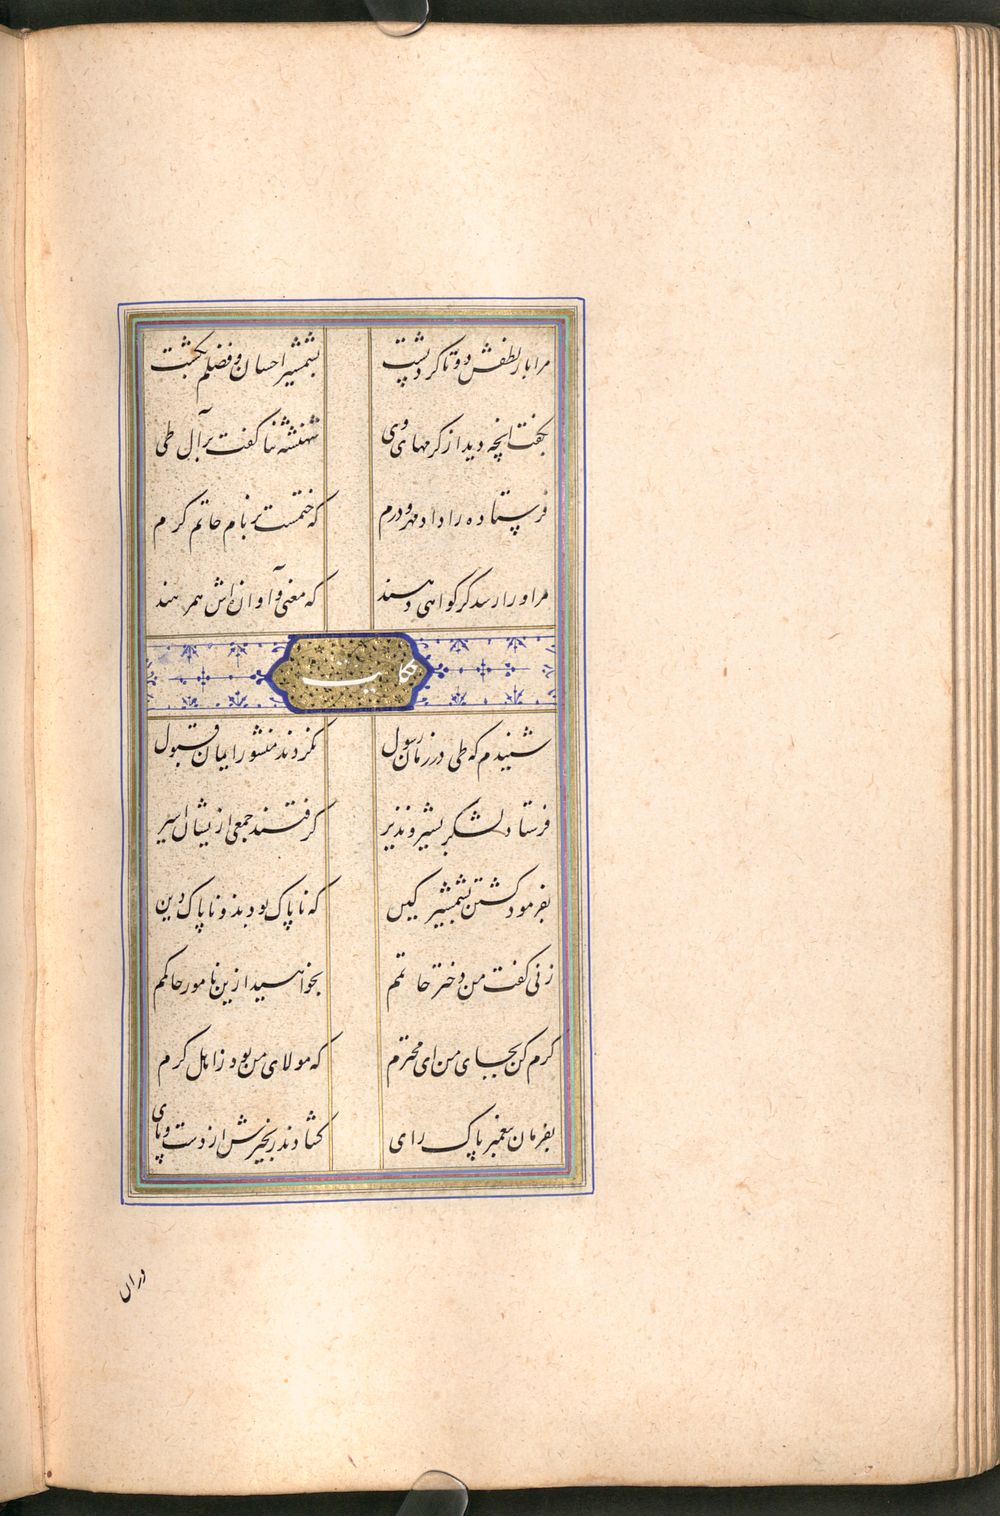 مرا بار لطفش دوتا کرد پشت بشمشیر احسان و فضلم بکشت
بگفت انچه دید از کرمهای وی شهنشه ثنا گفت بر آل طی
فرستاده را داد مهر و درم که ختمست بر نام حاتم کرم
مر او را رسد گر گواهی دهند که معنی و آوازه‌اش همرهند
حکایت
شنیدم که طی در زمان رسول نکردند منشور ایمان قبول
فرستاد لشکر بشیر و نذیر گرفتند جمعی ازیشان اسیر
بفرمود کشتن بشمشیر کین که ناپاک بودند و ناپاک دین
زنی گفت من دختر حاتمم بخواهید ازین نامور حاکمم
کرم کن بجای من ای محترم که مولای من بود ز اهل کرم
بفرمان پیغمبر پاک رای گشادند زنجیرش از دست و پای
دران